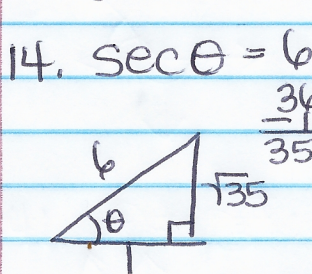 14. sec θ = 6
36
- 1
35
6
√35
θ
1